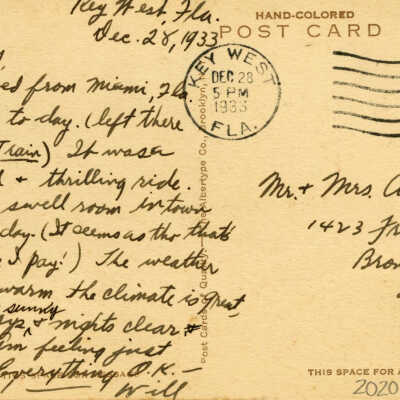 Key West, Fla.
Dec. 28, 1933
from Miami, Fla
to day. (left there
Train) It was a
+ thrilling ride.
swell room in town
day. (It seems as tho that's
I pay!) The weather
warm the climate is great
sunny
+ nights clear
feeling just
Everything O.K. -
Will
HAND-COLORED
POST CARD
KEY WEST
DEC 28
5 PM
1933
FLA.
Mr. + Mrs.
1423
Post Cards of Quality. - The Albertype Co., Brooklyn,
THIS SPACE FOR A
2020